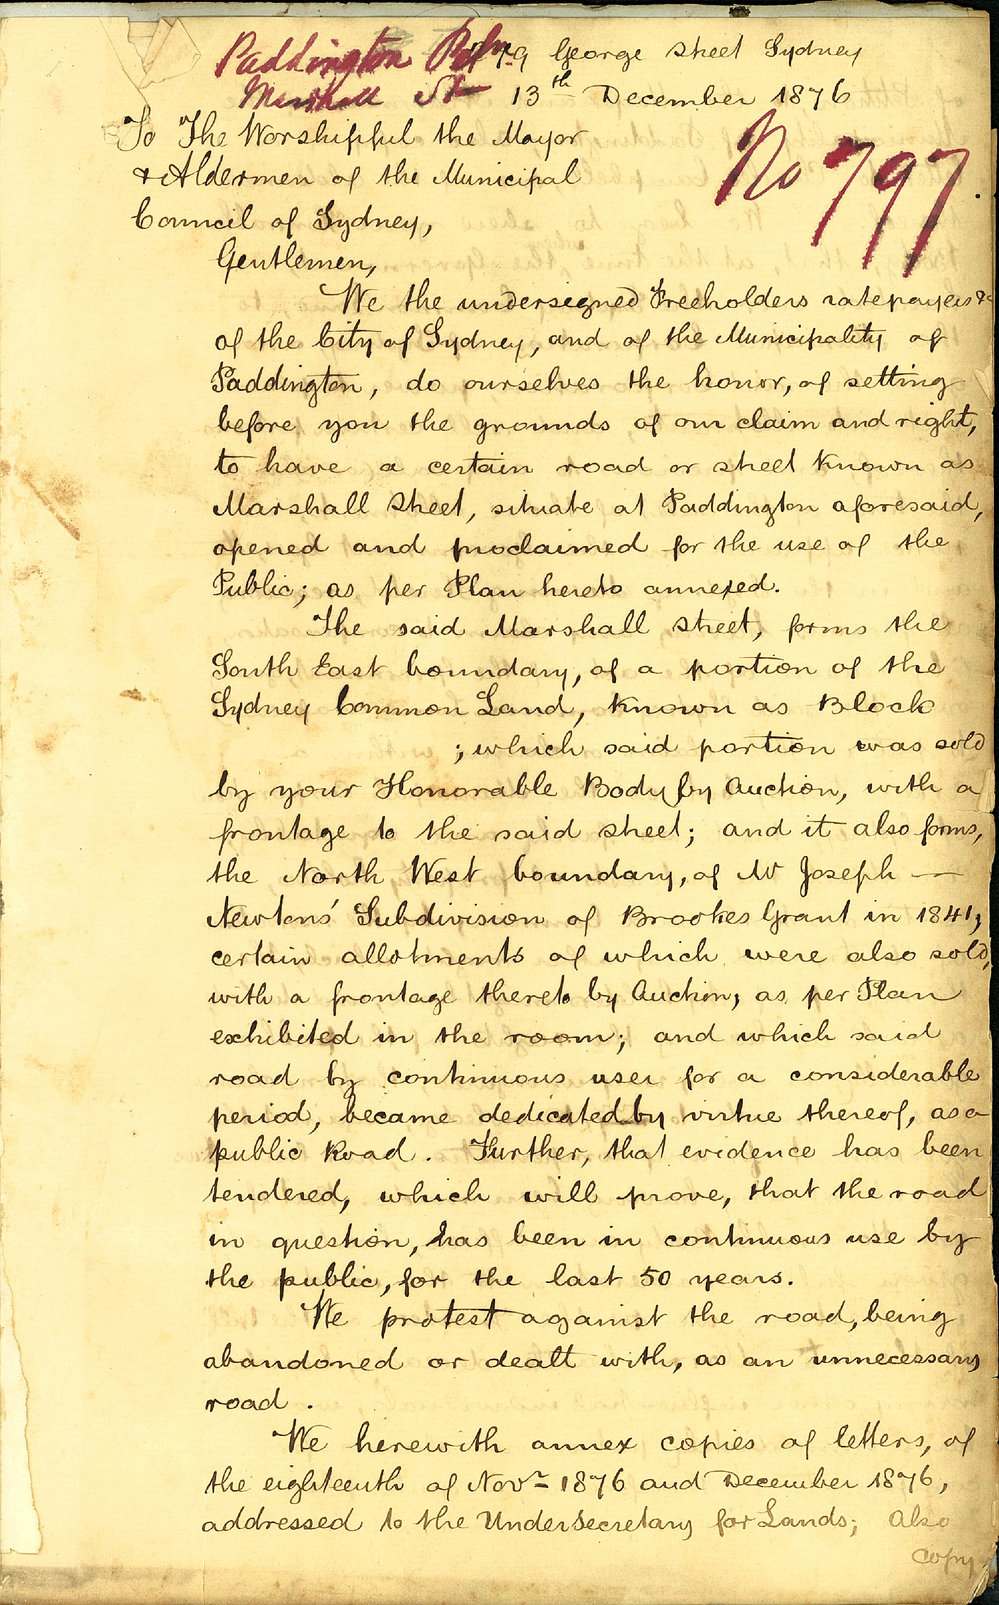 Paddington
Marshall St
79 George Street Sydney
13th December 1876
No 797.
To The Worshipful the Mayor
& Aldermen of the Municipal
Council of Sydney,
Gentlemen,
We the undersigned Freeholders ratepayers &c
of the City of Sydney, and of the Municipality of
Paddington, do ourselves the honor, of setting
before you the grounds of our claim and right,
to have a certain road or street known as
Marshall Street, situate at Paddington aforesaid,
opened and proclaimed for the use of the
Public; as per Plan hereto annexed.
The said Marshall Street, forms the
South East boundary, of a portion of the
Sydney Common Land, known as Block
; which said portion was sold
by your Honorable Body by Auction, with a
frontage to the said street; and it also forms,
the North West boundary, of Mr Joseph —
Newtons' Subdivision of Brookes Grant in 1841,
certain allotments of which were also sold,
with a frontage thereto by Auction, as per Plan
exhibited in the room; and which said
road by continuous user for a considerable
period, became dedicated by virtue thereof, as a
public Road. Further, that evidence has been
tendered, which will prove, that the road
in question, has been in continuous use by
the public, for the last 50 years.
We protest against the road, being
abandoned or dealt with, as an unnecessary
road.
We herewith annex copies of letters, of
the eighteenth of Novr 1876 and December 1876,
addressed to the Under Secretary for Lands; Also
copy